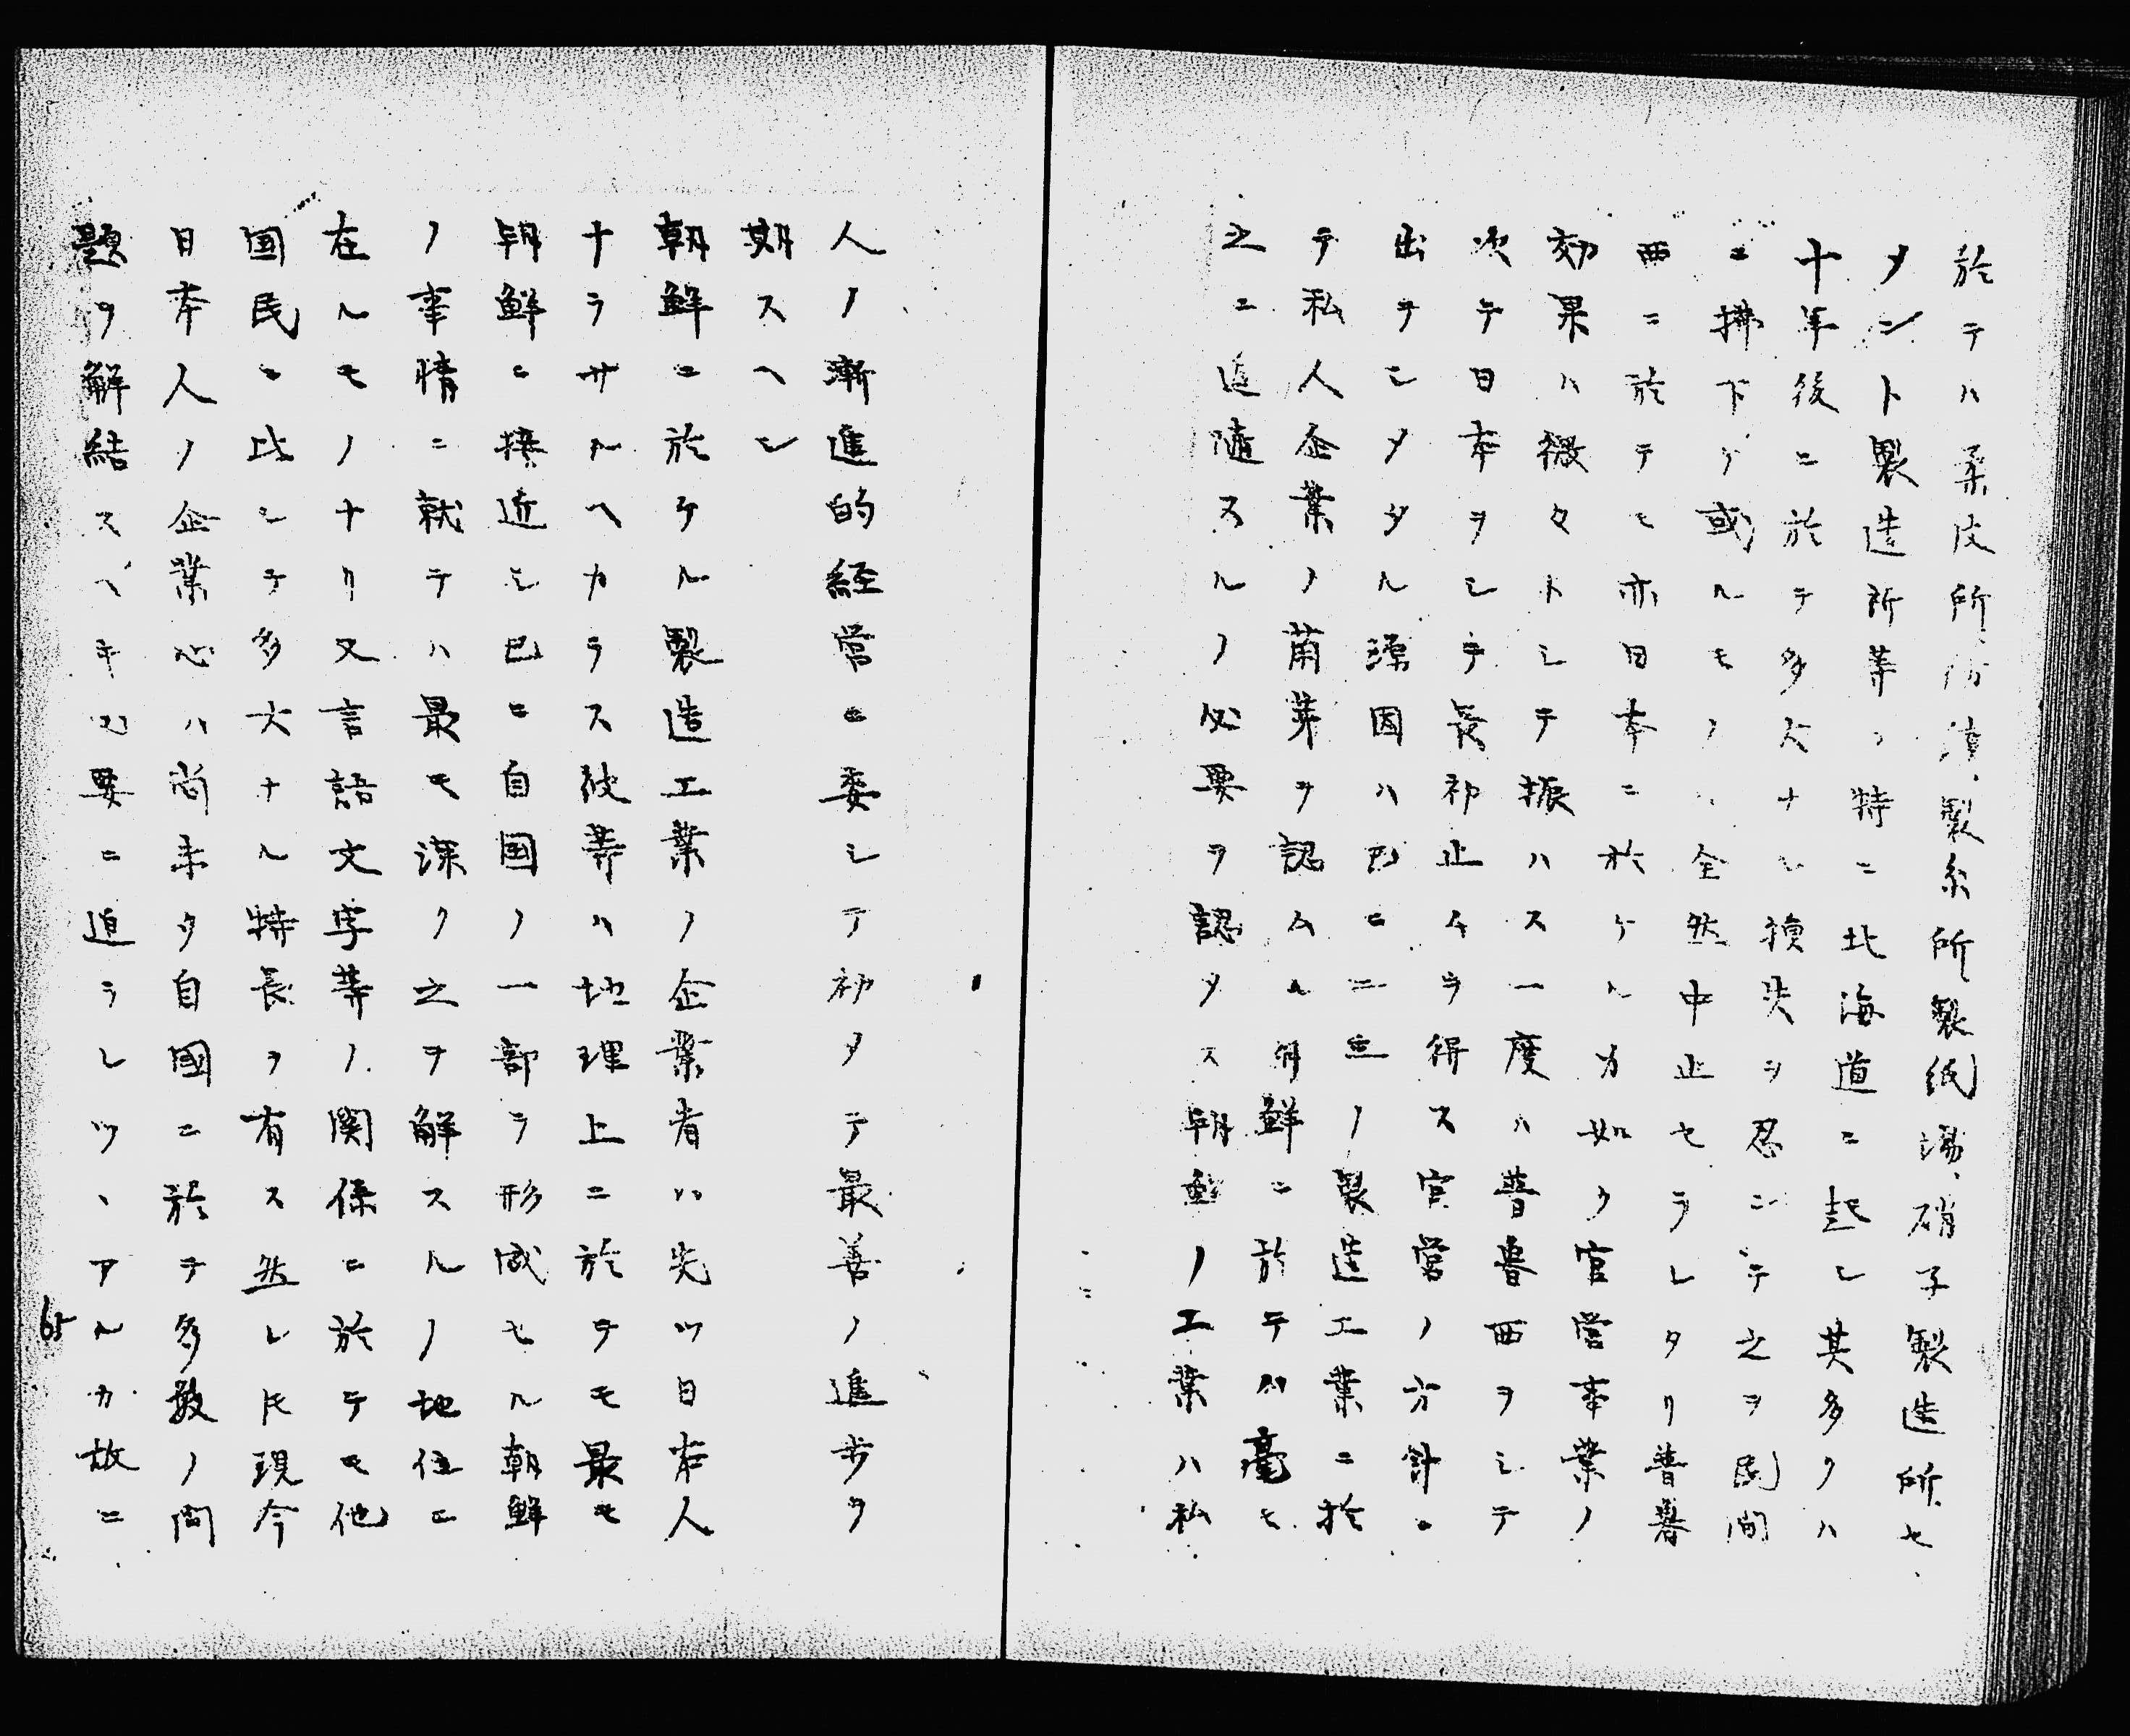 於テハ柔皮所、防漬、製糸所製紙場、硝子製造所セ
メント製造所等ノ特ニ北海道ニ起レ其多クハ
十年後ニ於テ多大ナル損失ヲ忍ンテ之ヲ民間
ニ拂下ケ或ルモノハ全然中止セラレタリ普魯
西ニ於テモ亦日本ニ於ケルカ如ク官営事業ノ
効果ハ微々トシテ振ハス一度ハ普魯西ヲシテ
次テ日本ヲシテ長初止ムヲ得ス官営ノ方針
出テシメタル源因ハ已ニ二三ノ製造工業ニ於
テ私人企業ノ萠芽ヲ認ムル朝鮮ニ於テハ毫モ
之ニ追随スルノ必要ヲ認メス朝鮮ノ工業ハ私
人ノ漸進的経営ニ委シテ初メテ最善ノ進歩ヲ
期スヘシ
朝鮮ニ於ケル製造工業ノ企業者ハ先ツ日本人
ナラサルヘカラス彼等ハ地理上ニ於テモ最モ
朝鮮ニ接近シ已ニ自国ノ一部ヲ形成セル朝鮮
ノ事情ニ就テハ最モ深ク之ヲ解スルノ地位ニ
在ルモノナリ又言語文字等ノ関係ニ於テモ他
国民ニ比シテ多大ナル特長ヲ有ス然レ氏現今
日本人ノ企業心ハ尚未タ自國ニ於テ多数ノ問
題ヲ解結スヘキ必要ニ迫ラレツヽアルカ故ニ
65